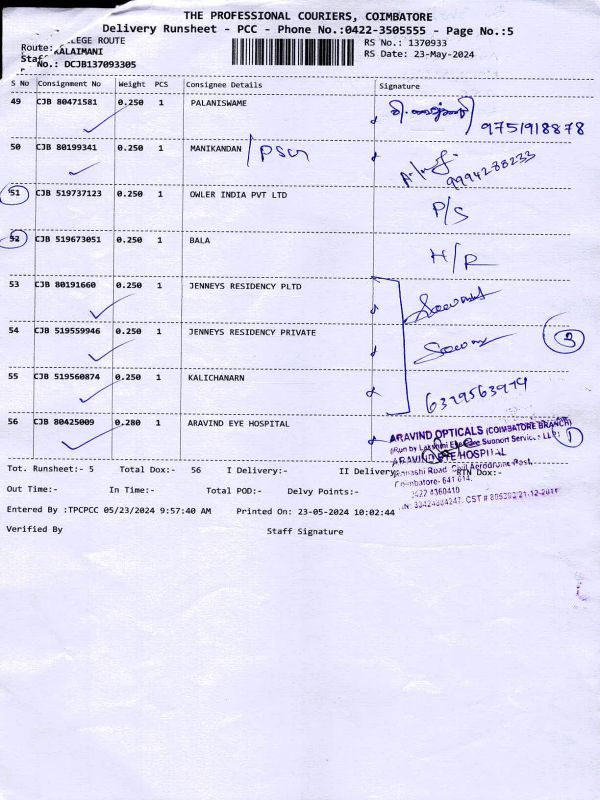 THE PROFESSIONAL COURIERS, COIMBATORE
Delivery Runsheet - PCC - Phone No.:0422-3505555 - Page No.:5
Route: LEGE ROUTE
RS No.: 1370933
Staff KALAIMANI
RS Date: 23-May-2024
No.: DCJB137093305
S No Consignment No Weight PCS Consignee Details Signature
49 CJB 80471581 0.250 1 PALANISWAME
9751918878
50 CJB 80199341 0.250 1 MANIKANDAN / PSG
9994288233
51 CJB 519737123 0.250 1 OWLER INDIA PVT LTD P/S
52 CJB 519673051 0.250 1 BALA H/R
53 CJB 80191660 0.250 1 JENNEYS RESIDENCY PLTD
54 CJB 519559946 0.250 1 JENNEYS RESIDENCY PRIVATE 3
55 CJB 519560874 0.250 1 KALICHANARN
6379563979
56 CJB 80425009 0.280 1 ARAVIND EYE HOSPITAL 1
ARAVIND OPTICALS (COIMBATORE BRANCH)
(Run by Lakshmi Eye Care Support Services LLP)
ARAVIND EYE HOSPITAL
Avinashi Road, Civil Aerodrome Post,
Coimbatore- 641 014.
0422 4360410
33424884247, CST #
Tot. Runsheet:- 5 Total Dox:- 56 I Delivery:- II Delivery:- RTN Dox:-
Out Time:- In Time:- Total POD:- Delvy Points:-
Entered By :TPCPCC 05/23/2024 9:57:40 AM Printed On: 23-05-2024 10:02:44
Verified By Staff Signature